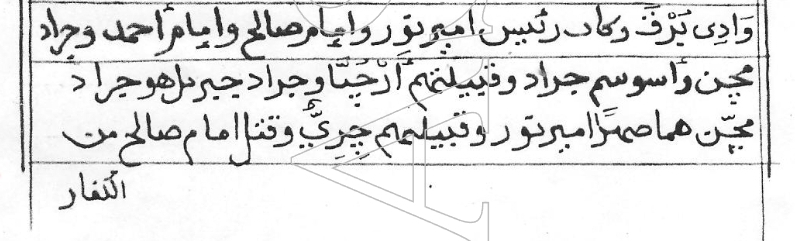 وَادِى يَرْفَ وكان رئيس امبرتور وإمام صالح وإمام أحمد وجراد
مجن وأسوسم جراد وقبيلتهم أَرْجُبَّا وجراد جبريل هو جراد
مجّن هما صهرًا امبرتور وقبيلتهم جِرِىُّ وقتل امام صالح من
الكفار